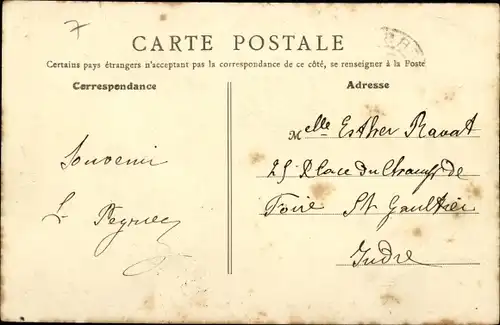 7
CARTE POSTALE
Certains pays étrangers n'acceptant pas la correspondance de ce côté, se renseigner à la Poste
Correspondance
Souvenir
Adresse
Melle Esther Ravat
25 Place du Champ de
Foire St Gaultier
Indre